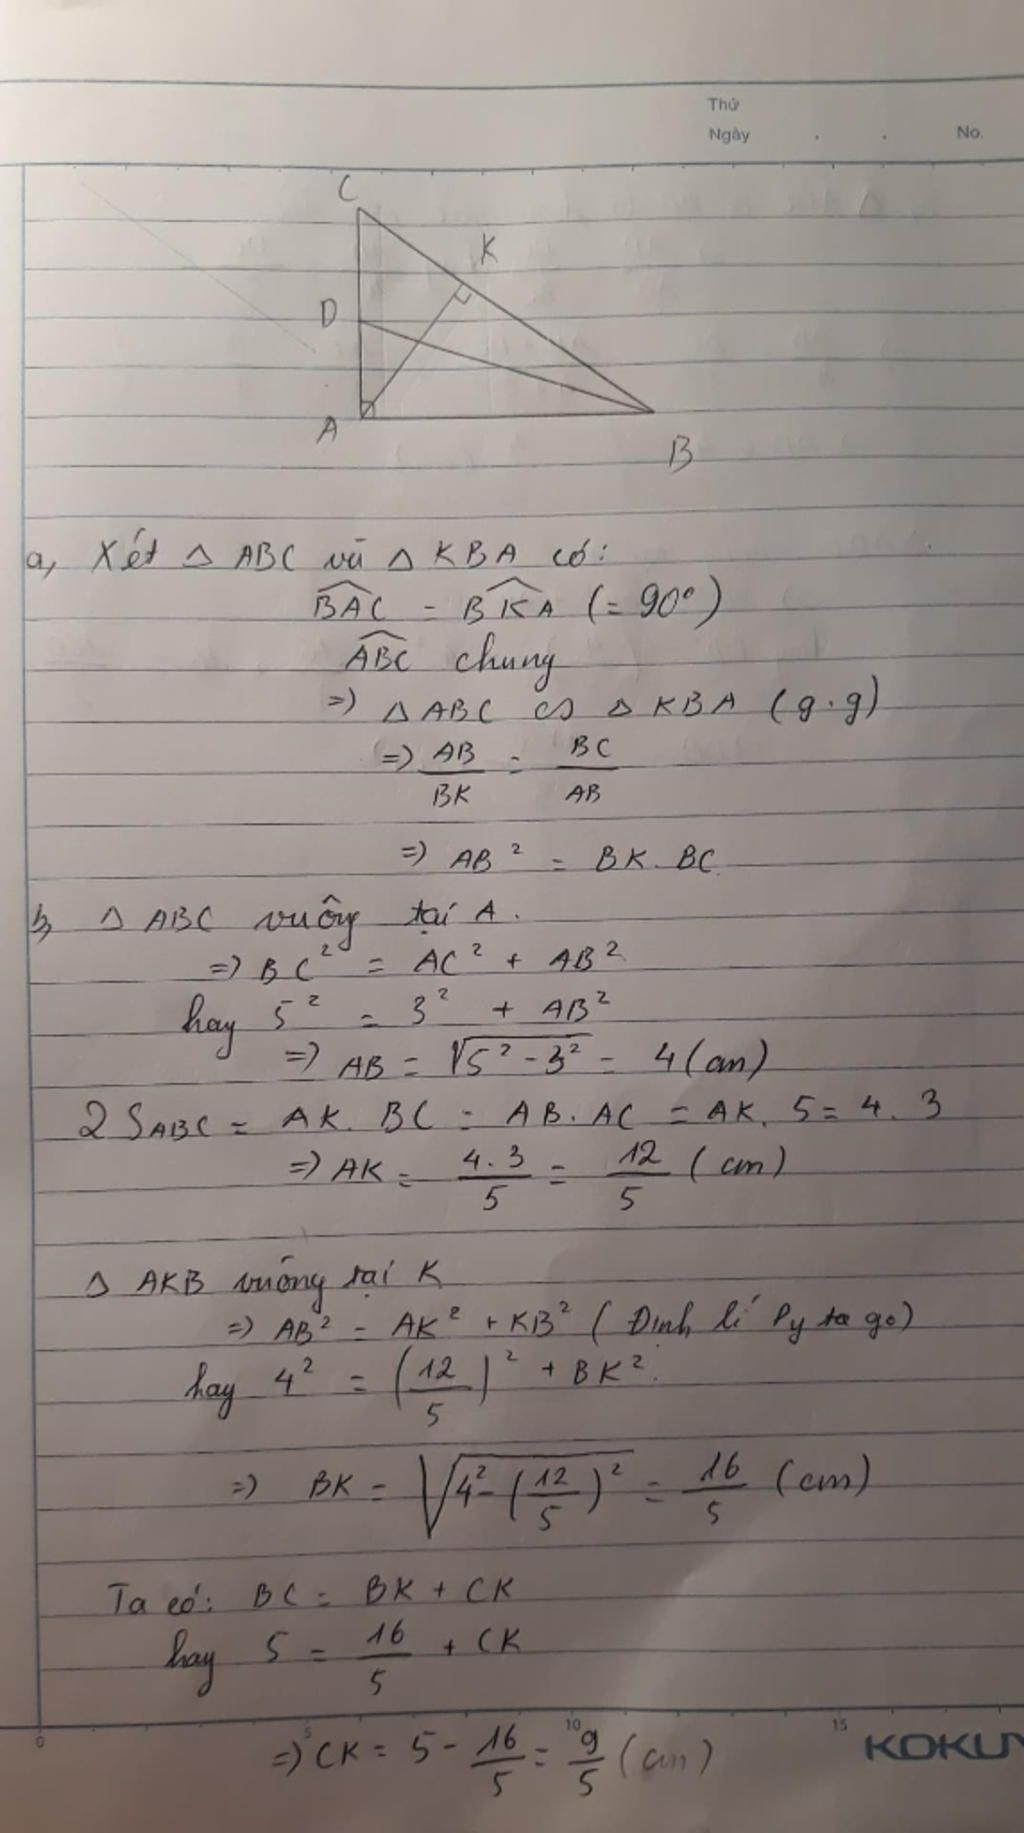 Thứ
Ngày . . No.
C
K
D
A
B
a, Xét △ ABC và △ KBA có:
B̂AC = B̂KA (= 90°)
ÂBC chung
=> △ ABC ∽ △ KBA (g.g)
=> AB/BK = BC/AB
=> AB² = BK. BC
b, △ ABC vuông tại A.
=> BC² = AC² + AB²
hay 5² = 3² + AB²
=> AB = √(5² - 3²) = 4 (cm)
2 SABC = AK. BC = AB. AC = AK. 5 = 4. 3
=> AK = 4.3/5 = 12/5 (cm)
△ AKB vuông tại K
=> AB² = AK² + KB² (Định lí Py ta go)
hay 4² = (12/5)² + BK².
=> BK = √(4² - (12/5)²) = 16/5 (cm)
Ta có: BC = BK + CK
hay 5 = 16/5 + CK
0 5 10 15
=> CK = 5 - 16/5 = 9/5 (cm)